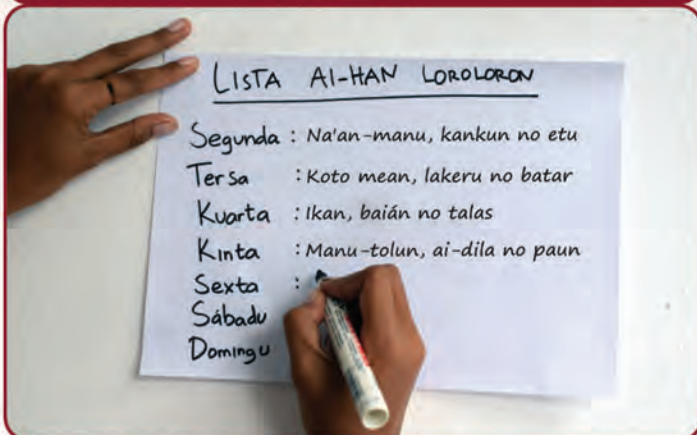 LISTA AI-HAN LOROLORON
Segunda : Na'an-manu, kankun no etu
Tersa : Koto mean, lakeru no batar
Kuarta : Ikan, baián no talas
Kinta : Manu-tolun, ai-dila no paun
Sexta :
Sábadu
Domingu